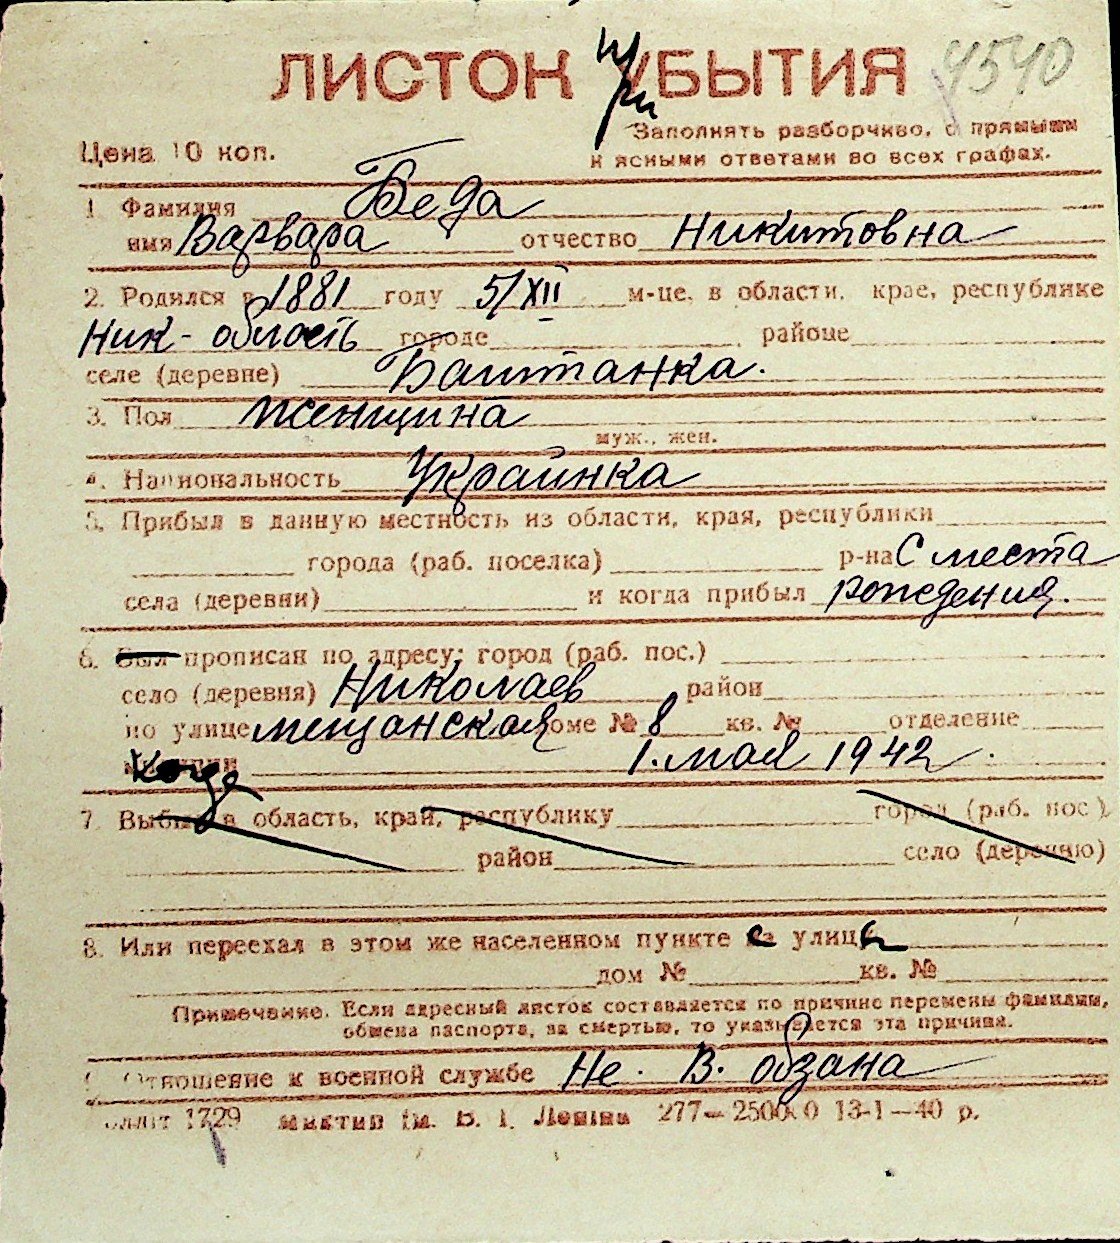 ЛИСТОК ПРИБЫТИЯ 4540
Цена 10 коп. Заполнять разборчиво, с прямыми
и ясными ответами во всех графах.
1. Фамилия Беда
имя Варвара отчество Никитовна
2. Родился в 1881 году 5/XII м-це, в области, крае, республике
Ник-область городе - районе
селе (деревне) Баштанка.
3. Пол женщина
муж., жен.
4. Национальность Украинка
5. Прибыл в данную местность из области, края, республики
города (раб. поселка) р-на С места
села (деревни) и когда прибыл рождения.
6. Был прописан по адресу: город (раб. пос.)
село (деревня) Николаев район
по улице мещанская доме № 8 кв. № отделение
Когда 1. мая 1942.
7. Выбыл в область, край, республику город (раб. пос.)
район село (деревню)
8. Или переехал в этом же населенном пункте с улицы
дом № кв. №
Примечание. Если адресный листок составляется по причине перемены фамилии,
обмена паспорта, за смертью, то указывается эта причина.
Отношение к военной службе Не. В. обзана
1729 им. В. І. Леніна 277— 13-1—40 р.